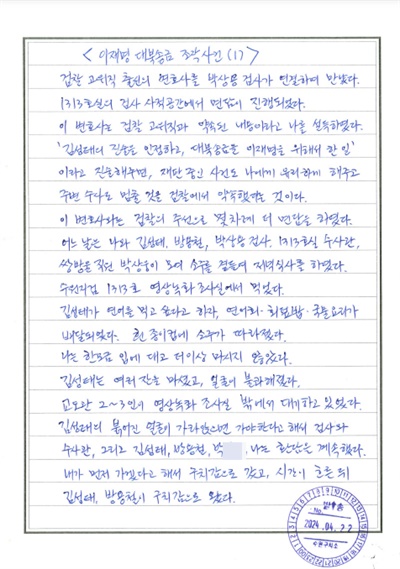 < 이재명 대북송금 조작사건 (1) >
검찰 고위직 출신의 변호사를 박상용 검사가 연결하여 만났다.
1313호실의 검사 사적공간에서 면담이 진행되었다.
이 변호사는 검찰 고위직과 약속된 내용이라고 나를 설득하였다.
'김성태의 진술을 인정하고, 대북송금을 이재명을 위해서 한 일'
이라고 진술해주면, 재판 중인 사건도 나에게 유리하게 해주고
주변 수사도 멈출 것을 검찰에서 약속했다는 것이다.
이 변호사와는 검찰의 주선으로 몇차례 더 면담을 하였다.
어느 날은 나와 김성태, 방용철, 박상용 검사, 1313호실 수사관,
쌍방울 직원 박상웅이 모여 소주를 곁들여 저녁식사를 하였다.
수원지검 1313호 영상녹화 조사실에서 먹었다.
김성태가 연어를 먹고 싶다고 하자, 연어회·회덮밥·국물요리가
배달되었다. 흰 종이컵에 소주가 따라졌다.
나는 한모금 입에 대고 더이상 마시지 않았다.
김성태는 여러 잔을 마셨고, 얼굴이 붉어졌다.
교도관 2~3인이 영상녹화 조사실 밖에서 대기하고 있었다.
김성태의 붉어진 얼굴이 가라앉으면 가야한다고 해서 검사와
수사관, 그리고 김성태, 방용철, 박 , 나는 환담을 계속했다.
내가 먼저 가겠다고 해서 구치감으로 갔고, 시간이 흐른 뒤
김성태, 방용철이 구치감으로 왔다.
No
2024.04.22
수원구치소